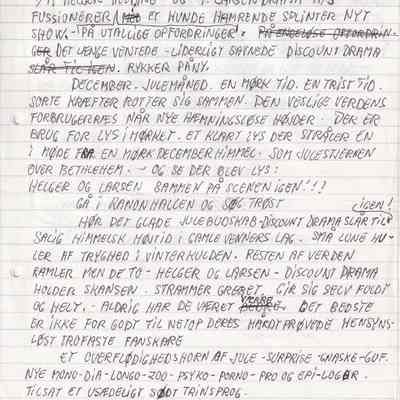 HELGER OG LARSEN DRAMA A/S
FUSSIONERER MED ET HUNDE HAMRENDE SPLINTER NYT
SHOW. - PÅ UTALLIGE OPFORDRINGER. PÅ ENGLØSE OPFORDRIN-
GER DET LÆNGE VENTEDE - LIDERLIGT SAVNEDE DISCOUNT DRAMA
SLÅR TIL IGEN. RYKKER PÅNY.
DECEMBER. JULEMÅNED. EN MØRK TID. EN TRIST TID.
SORTE KRÆFTER ROTTER SIG SAMMEN. DEN VESTLIGE VERDENS
FORBRUGERRÆS NÅR NYE HÆMNINGSLØSE HØJDER. DER ER
BRUG FOR LYS I MØRKET. ET KLART LYS DER STRÅLER EN
I MØDE FRA EN MØRK DECEMBERHIMMEL. SOM JULESTJERNEN
OVER BETHALEHEM. - OG SE DER BLEV LYS:
HELGER OG LARSEN SAMMEN PÅ SCENEN IGEN!!!
GÅ I KANONHALLEN OG SØG TRØST
IGEN!
HØR DET GLADE JULEBUDSKAB - DISCOUNT DRAMA SLÅR TIL
SALIG HIMMELSK HØJTID I GAMLE VENNERS LAG. SMÅ LUNE HU-
LER AF TRYGHED I VINTERKULDEN. RESTEN AF VERDEN
RAMLER MEN DE TO - HELGER OG LARSEN - DISCOUNT DRAMA
HOLDER SKANSEN. STRAMMER GREBET. GIR SIG SELV FULDT
OG HELT. - ALDRIG HAR DE VÆRET VÆRRE. DET BEDSTE
ER IKKE FOR GODT TIL NETOP DERES HÅRDTPRØVEDE HENSYNS-
LØST TROFASTE FANSKARE
ET OVERFLØDIGHEDSHORN AF JULE - SURPRISE - GNASKE - GUF.
NYE MONO - DIA - LONGO - ZOO - PSYKO - PORNO - PRO OG EPI - LOGER.
TILSAT ET USÆDELIGT SØDT TRINSPROG.